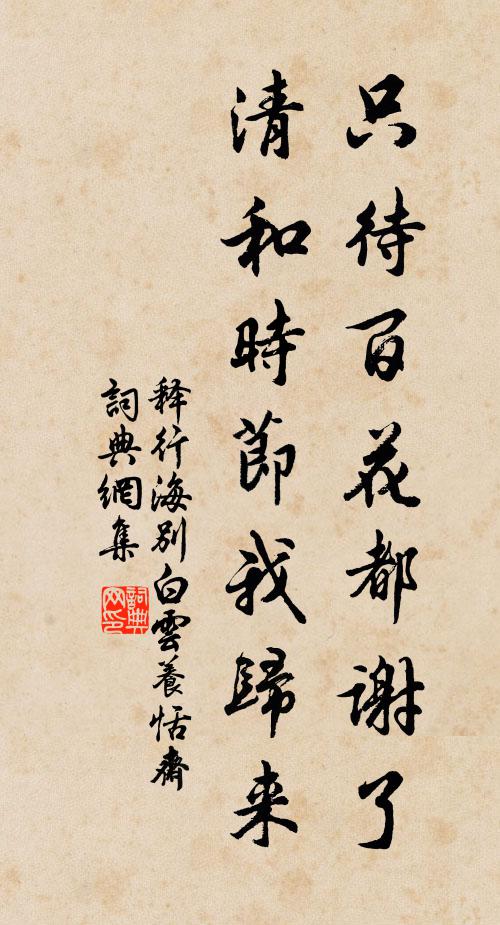 只待百花都謝了
清和時節我歸来
释行海別白雲養恬齋
詞典網集
詞典
网印